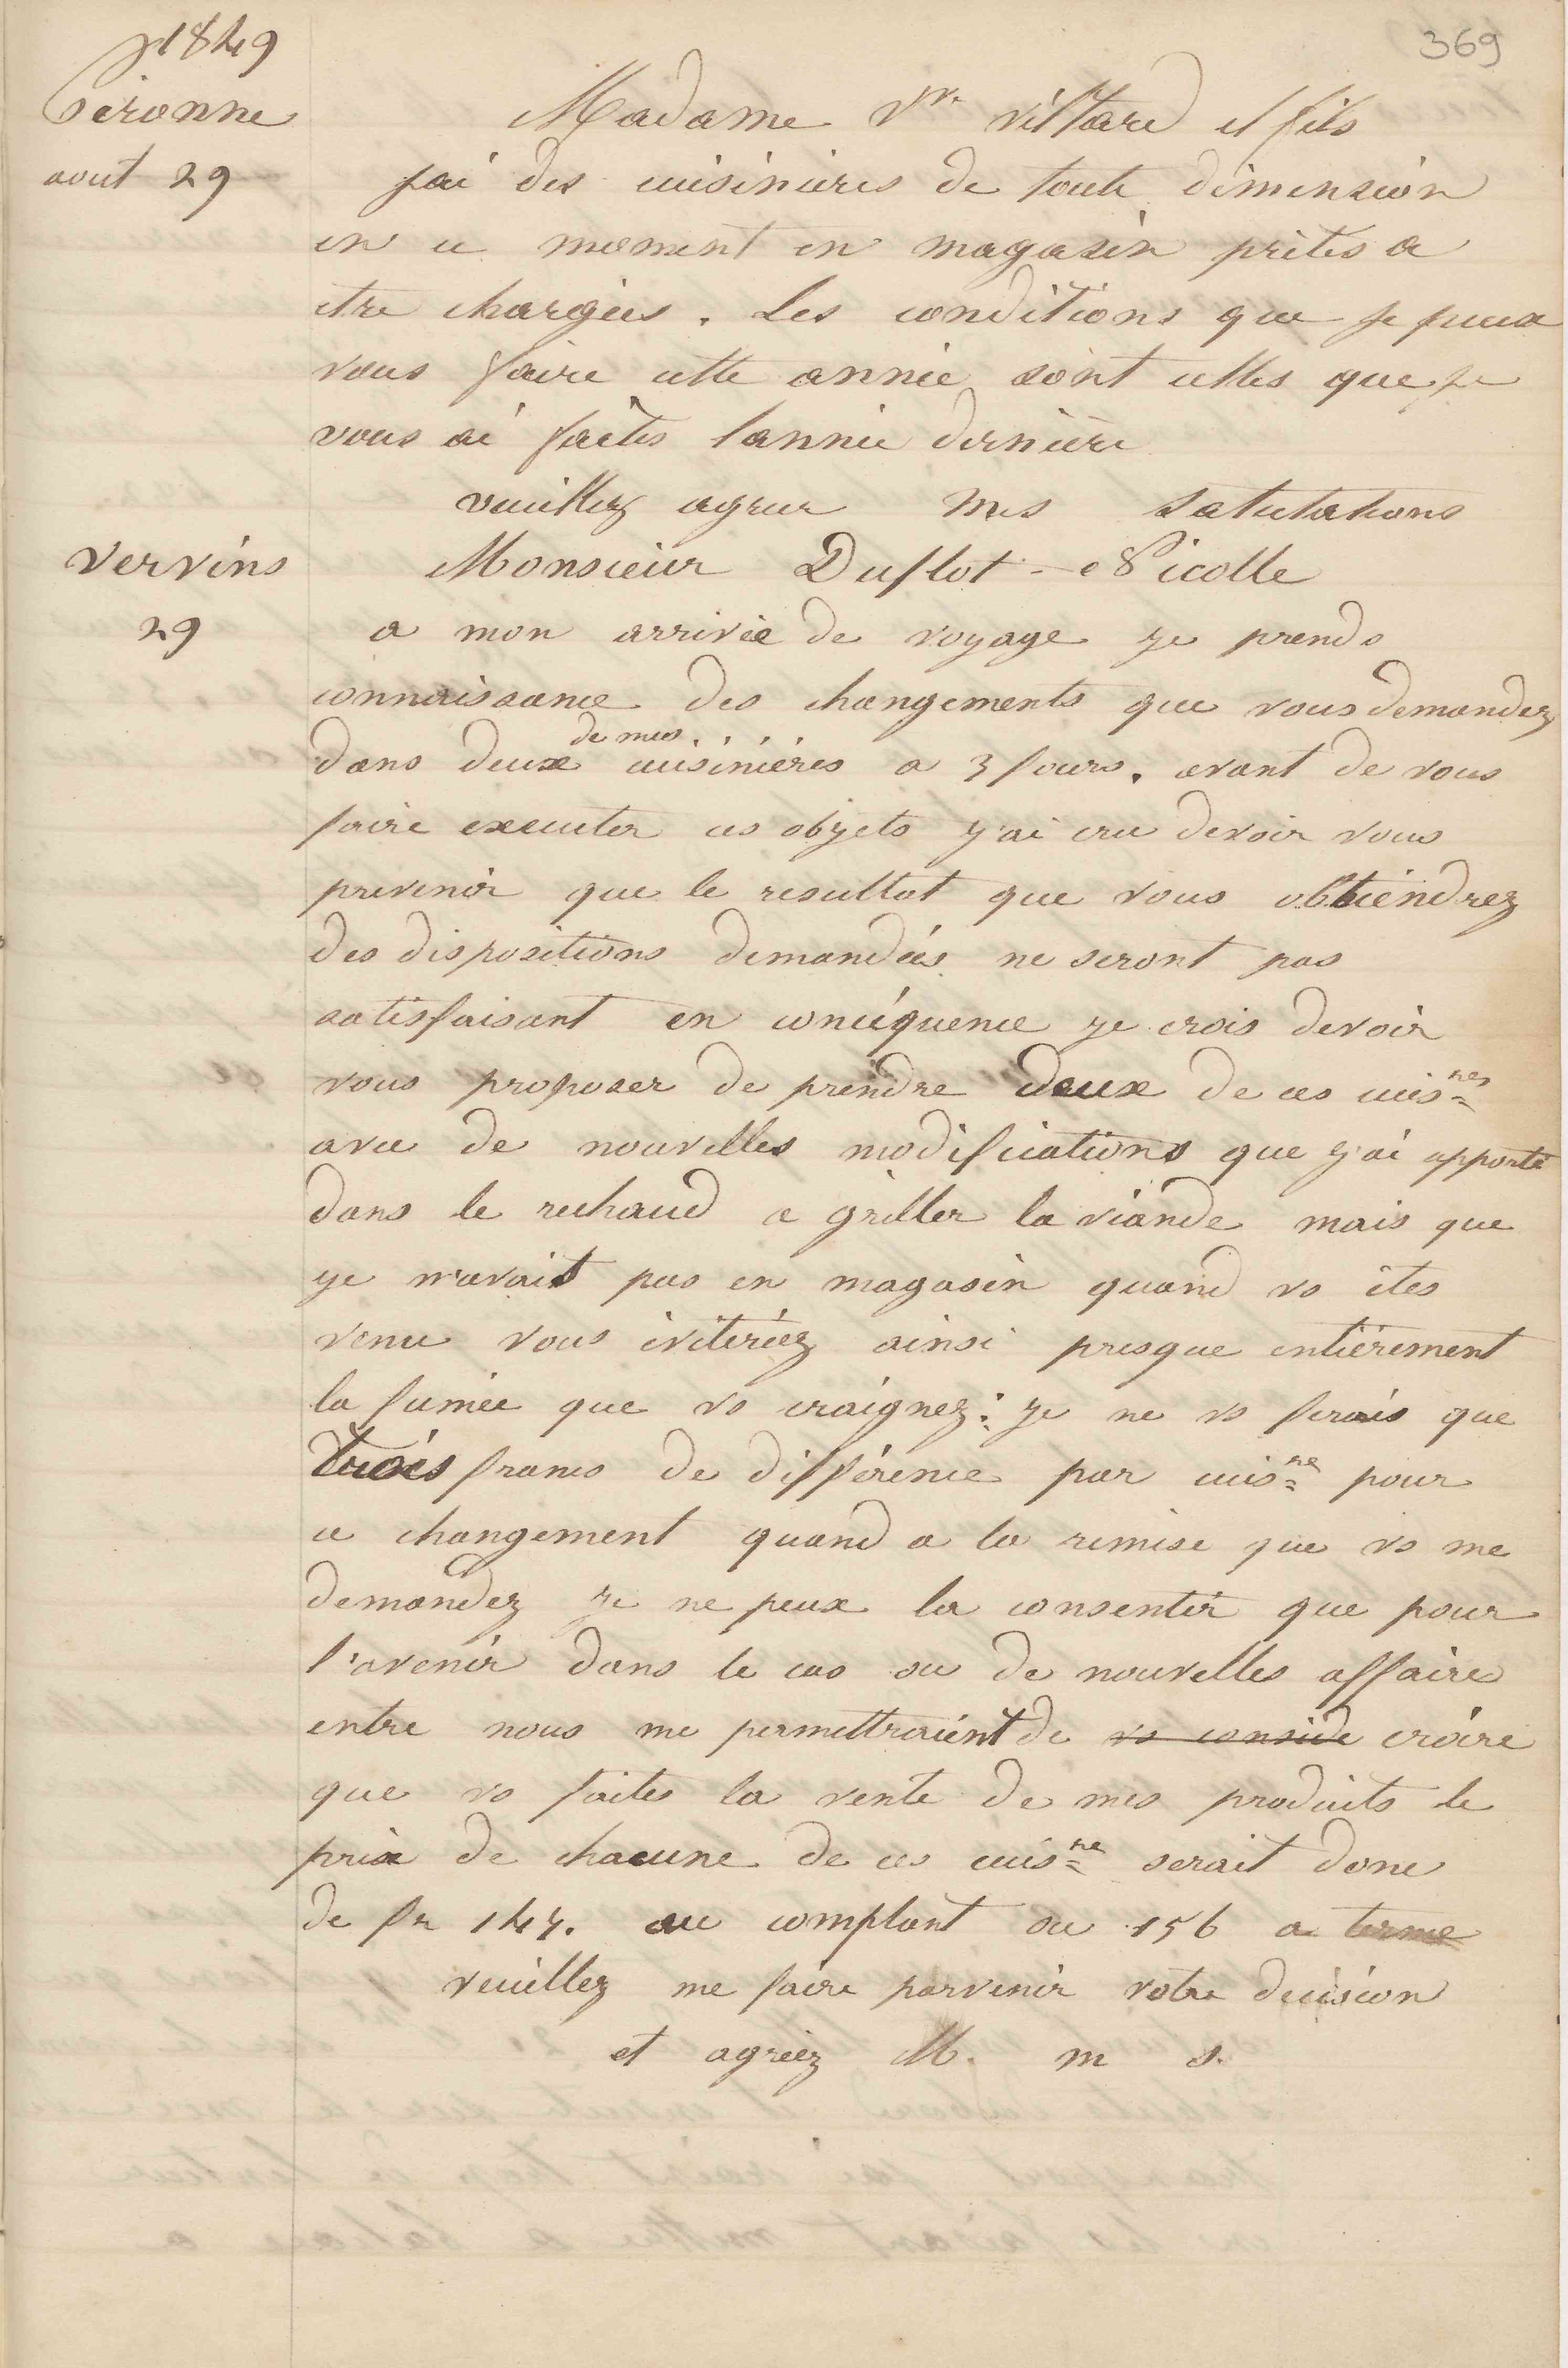 1849
369
Péronne
Madame Vve villard et fils
aout 29
jai des cuisinieres de toute dimension
en ce moment en magasin prètes a
etre chargées. Les conditions que je peux
vous faire cette année sont celles que je
vous ai faites lannée dernière
veuillez agreer mes salutations
Vervins
Monsieur Duflot-Nicolle
29
a mon arrivée de voyage je prends
connaissance des changements que vous demandez
dans deux de mes cuisinières a 3 fours. avant de vous
faire executer ces objets j'ai cru devoir vous
prevenir que le resultat que vous obtiendrez
des dispositions demandées ne seront pas
satisfaisant en concéquence je crois devoir
vous proposer de prendre deux de ces cuisnes
avec de nouvelles modifications que j'ai apporté
dans le rechaud a griller la viande mais que
je n'avait pas en magasin quand vs êtes
venu vous éviteriez ainsi presque entièrement
la fumée que vs craignez: je ne vs ferais que
trois francs de différence par cuisne pour
ce changement quand a la remise que vs me
demandez je ne peux la consentir que pour
l'avenir dans le cas ou de nouvelles affaires
entre nous me permettraient de vs conside croire
que vs faites la vente de mes produits le
prix de chacune de ces cuisne serait donc
de fr 147. au comptant ou 156 a terme
veuillez me faire parvenir votre décision
et agréez M. m s.